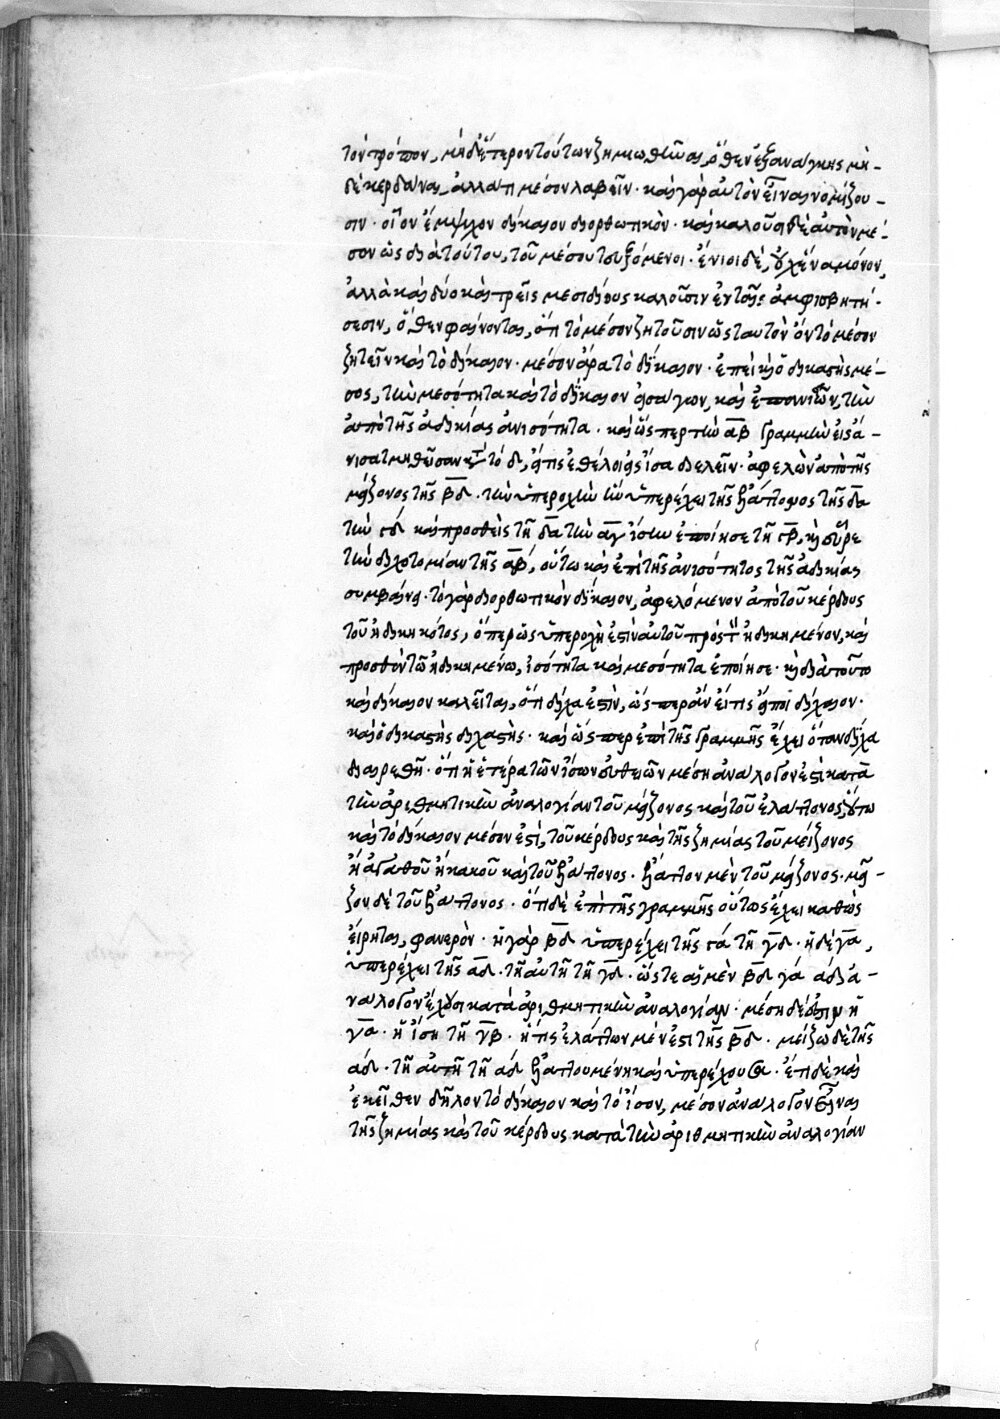 τὸν τρόπον, μηδέτερον τούτων ζημιωθῆναι, ὅθεν ἐξανάγκης μη-
δὲ κερδάναι, ἀλλά τι μέσον λαβεῖν· καὶ γὰρ αὐτὸν εἶναι νομίζου-
σιν· οἷον ἔμψυχον δίκαιον διορθωτικὸν· καὶ καλοῦσι δὲ αὐτὸν μέ-
σον ὡς διὰ τούτου, τοῦ μέσου τευξόμενοι· ἔνιοι δὲ, οὐχ ἕνα μόνον,
ἀλλὰ καὶ δύο καὶ τρεῖς μεσιδίους καλοῦσιν ἐν ταῖς ἀμφισβητή-
σεσιν, ὅθεν φαίνονται, ὅτι τὸ μέσον ζητοῦσιν ὥς ταυτὸν ὂν τὸ μέσον
ζητεῖν καὶ τὸ δίκαιον· μέσον ἄρα τὸ δίκαιον· ἐπεὶ καὶ ὁ δικαστὴς μέ-
σος, τὴν μεσότητα καὶ τὸ δίκαιον εἰσάγων, καὶ ἐπανισῶν, τὴν
ἀπὸ τῆς ἀδικίας ἀνισότητα· καὶ ὥσπερ τὴν α̅β̅ γραμμὴν εἰς ἄ-
νισα τμηθεῖσαν κατὰ τὸ δ, εἴ τις ἐθέλοι εἰς ἴσα διελεῖν· ἀφελὼν ἀπὸ τῆς
μείζονος τῆς β̅δ̅· τὴν ὑπεροχὴν ἣν ὑπερέχει τῆς ἐλάττονος τῆς δ̅α̅
τὴν γδ καὶ προσθεὶς τῇ δ̅α̅ τὴν α̅γ̅ ἴσην ἐποίησε τῇ γ̅β̅, καὶ εὗρε
τὴν διχοτομίαν τῆς α̅β̅, οὕτω καὶ ἐπὶ τῆς ἀνισότητος τῆς ἀδικίας
συμβαίνει· τὸ γὰρ διορθωτικὸν δίκαιον, ἀφελόμενον ἀπὸ τοῦ κέρδους
τοῦ ἠδικηκότος, ὅπερ ὡς ὑπεροχὴ ἐστὶν αὐτοῦ πρὸς τὸν ἠδικημένον, καὶ
προσθὲν τῷ ἠδικημένω, ἰσότητα καὶ μεσότητα ἐποίησε· καὶ διὰ τοῦτο
καὶ δίκαιον καλεῖται, ὅτι δίχα ἐστὶν, ὥσπερ ἂν εἴ τις εἴποι δίχαιον·
καὶ ὁ δικαστὴς διχαστὴς· καὶ ὥσπερ ἐπὶ τῆς γραμμῆς ἔχει ὅταν δίχα
διαιρεθῇ· ὅτι ἡ ἑτέρα τῶν ἴσων εὐθειῶν μέση ἀνάλογον ἐστὶ κατὰ
τὴν ἀριθμητικὴν ἀναλογίαν τοῦ μείζονος καὶ τοῦ ἐλάττονος, οὕτω
καὶ τὸ δίκαιον μέσον ἐστὶ, τοῦ κέρδους καὶ τῆς ζημίας τοῦ μείζονος
ἢ ἀγαθοῦ ἢ κακοῦ καὶ τοῦ ἐλάττονος· ἔλαττον μὲν τοῦ μείζονος· μεῖ-
ζον δὲ τοῦ ἐλάττονος· ὅτι δὲ ἐπὶ τῆς γραμμῆς οὕτως ἔχει καθὼς
εἴρηται, φανερὸν· ἡ γὰρ β̅δ̅ ὑπερέχει τῆς γά τῇ γ̅δ̅· ἡ δὲ γ̅α̅,
ὑπερέχει τῆς α̅δ̅· τῇ αὐτῇ τῇ γ̅δ̅· ὥστε αἱ μὲν β̅δ̅ γά άδ ἀ-
νάλογον ἔχουσι κατὰ ἀριθμητικὴν ἀναλογίαν· μέση δέ ἐστιν ἡ
γ̅α̅· ἡ ἴση τῇ γ̅β̅· ἥτις ἐλάττων μέν ἐστι τῆς β̅δ̅· μείζω δὲ τῆς
άδ· τῇ αὐτῇ τῇ άδ ἐλαττουμένη καὶ ὑπερέχουσα· ἔτι δὲ καὶ
ἐκεῖθεν δῆλον τὸ δίκαιον καὶ τὸ ἴσον, μέσον ἀνάλογον εἶναι
τῆς ζημίας καὶ τοῦ κέρδους κατὰ τὴν ἀριθμητικὴν ἀναλογίαν